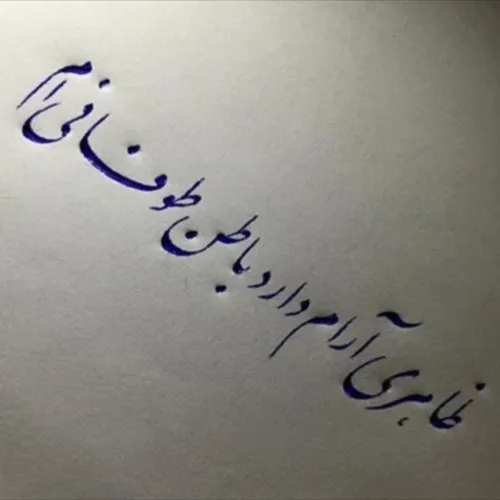 ظاهری آرام دارد باطن طوفانی ام